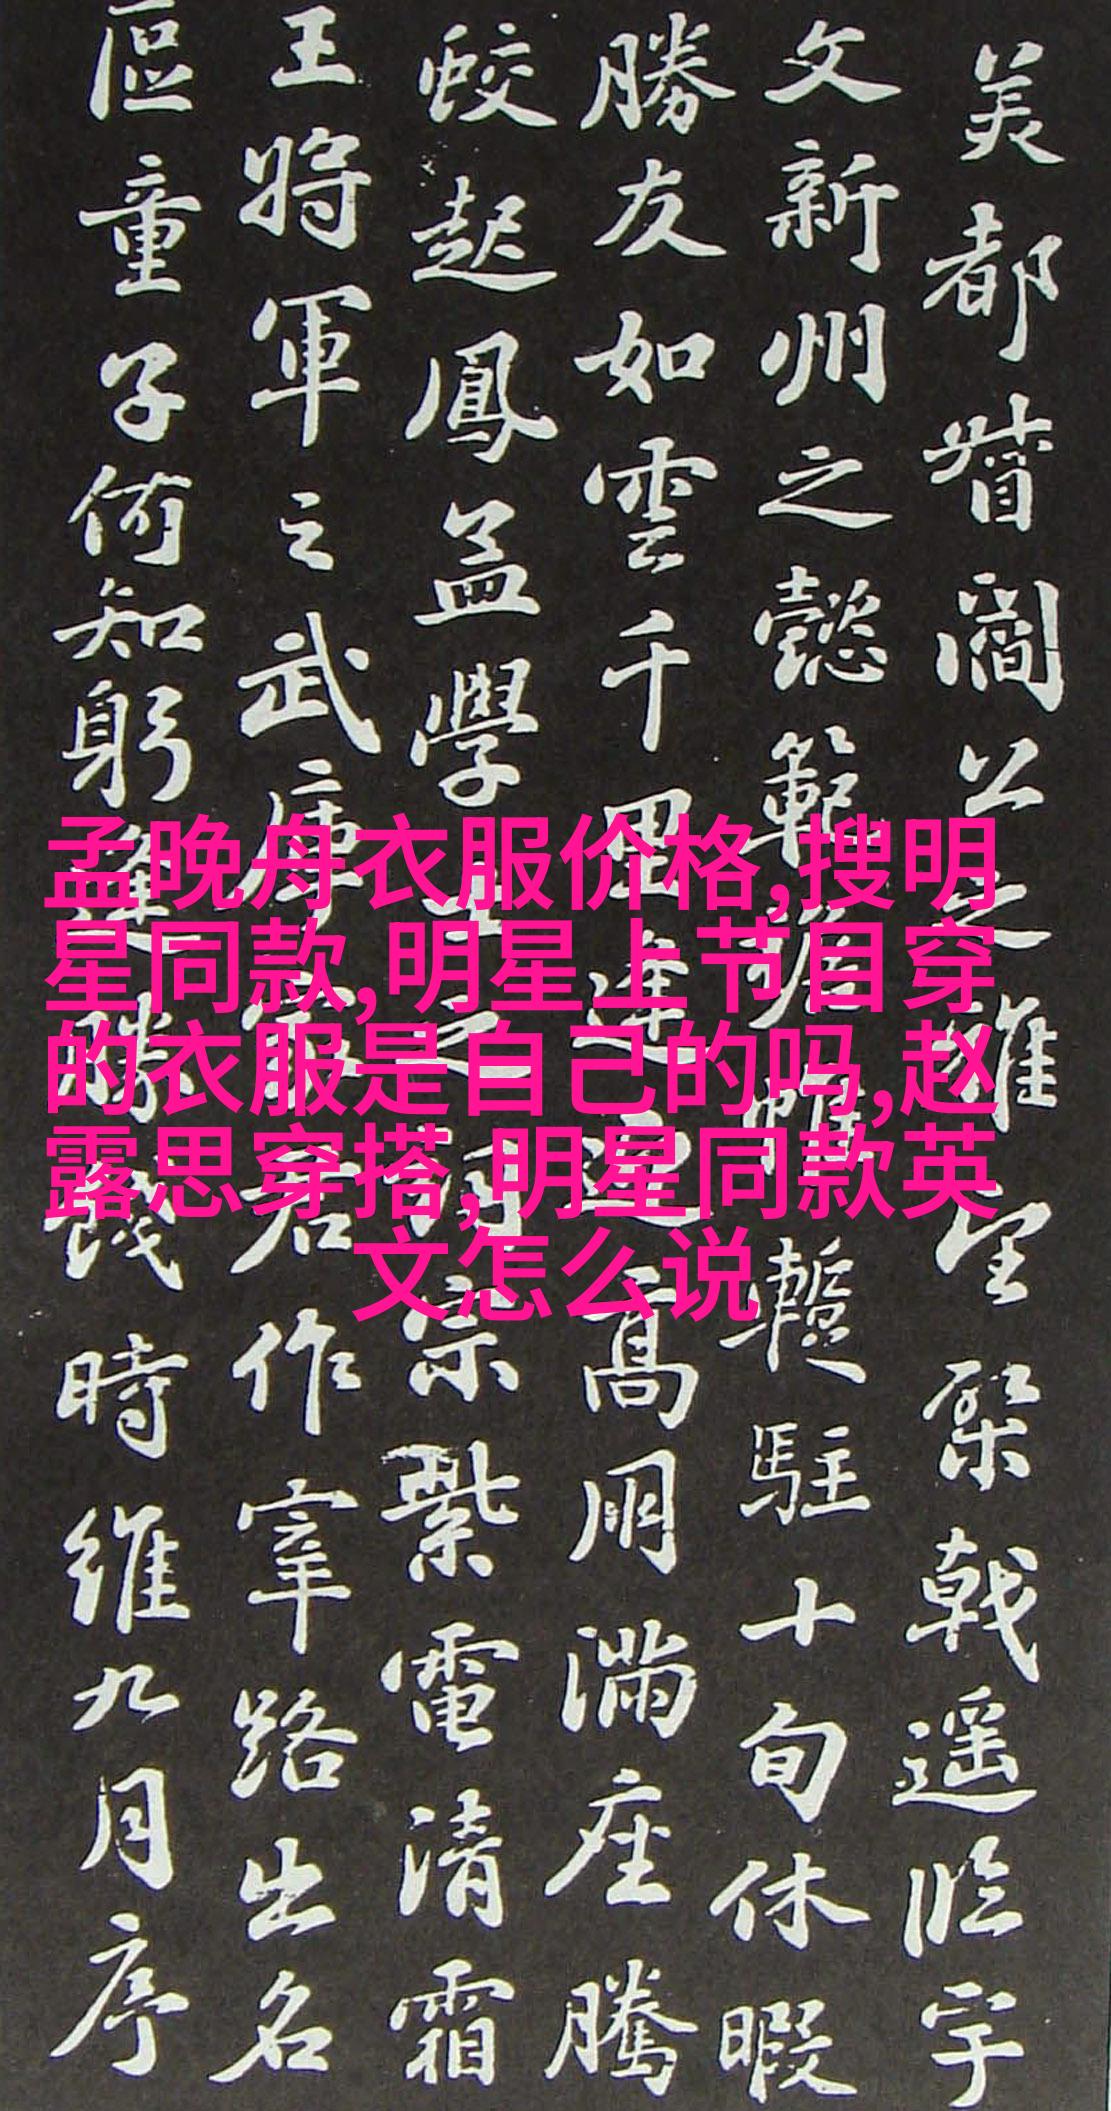 美都督閻公之雅望棨戟遥臨宇
文新州之懿範襜帷暫駐十旬休暇
勝友如雲千里逢迎高朋滿座騰
蛟起鳳孟學士之詞宗紫電清霜
王將軍之武庫家君作宰路出名
區童子何知躬逢勝餞時維九月序
孟晚舟衣服价格,搜明
星同款,明星上节目穿
的衣服是自己的吗,赵
露思穿搭,明星同款英
文怎么说